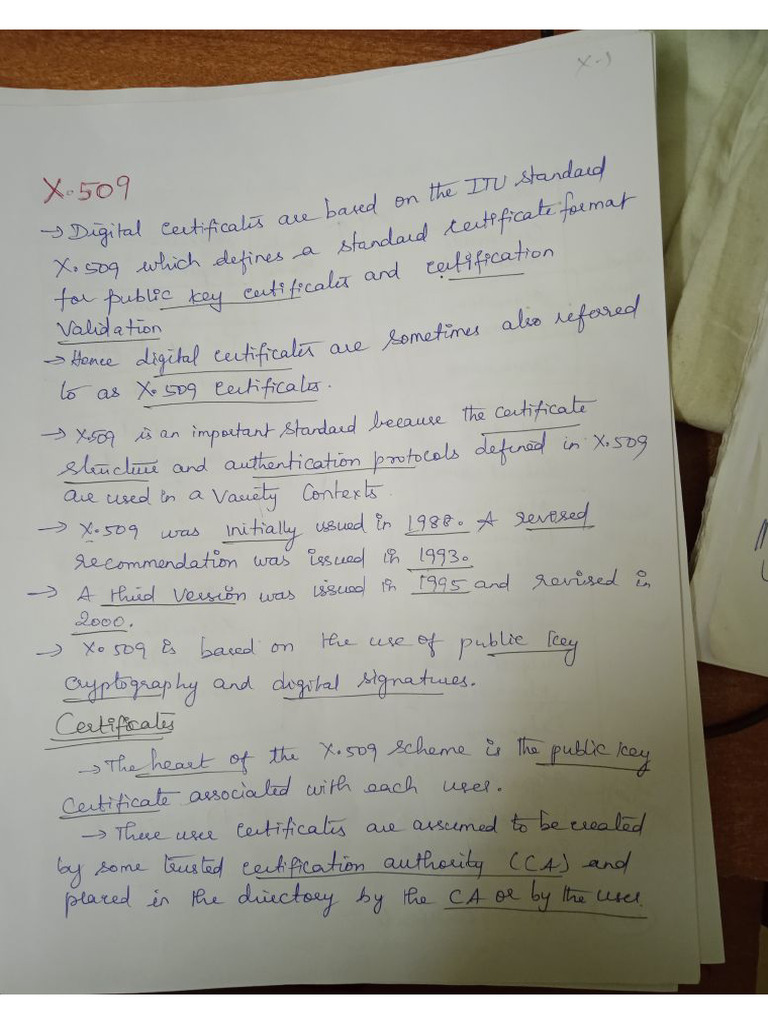 X-1
X.509
→ Digital certificates are based on the ITU standard
X.509 which defines a standard certificate format
for public key certificates and certification
Validation
→ Hence digital certificates are sometimes also referred
to as X.509 certificates.
→ X.509 is an important standard because the certificate
structure and authentication protocols defined in X.509
are used in a Variety Contexts.
→ X.509 was initially issued in 1988. A revised
recommendation was issued in 1993.
→ A third version was issued in 1995 and revised in
2000.
→ X.509 is based on the use of public key
cryptography and digital signatures.
Certificates
→ The heart of the X.509 scheme is the public key
Certificate associated with each user.
→ These user certificates are assumed to be created
by some trusted certification authority (CA) and
placed in the directory by the CA or by the user.